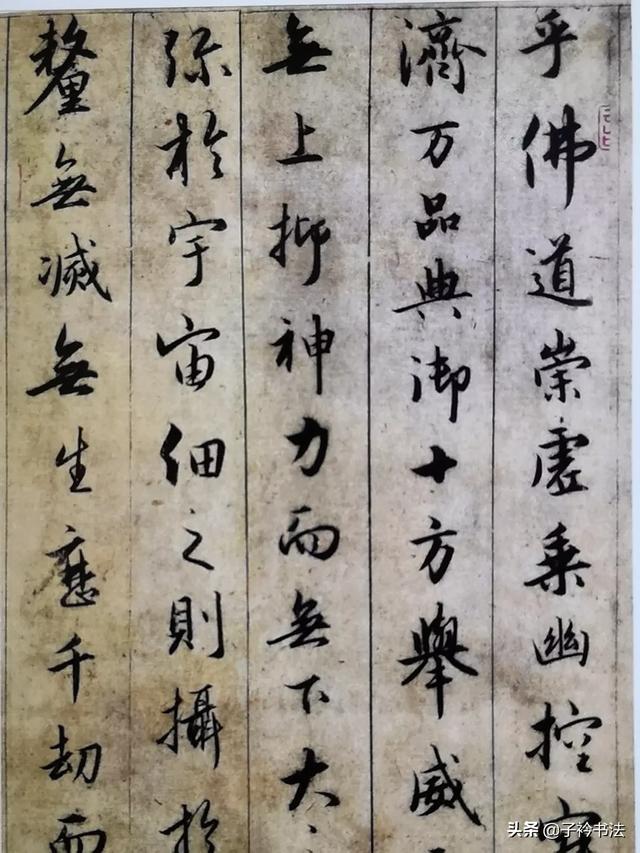 乎佛道崇虛乘幽控
濟万品典御十方舉威
無上抑神力而無下大
弥於宇宙細之則攝於
釐無滅無生歷千劫而
头条 @子衿书法